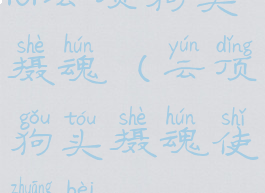 shè hún yún dǐng
摄魂（云顶
gǒu tóu shè hún shǐ
狗头摄魂使
zhuāng bèi